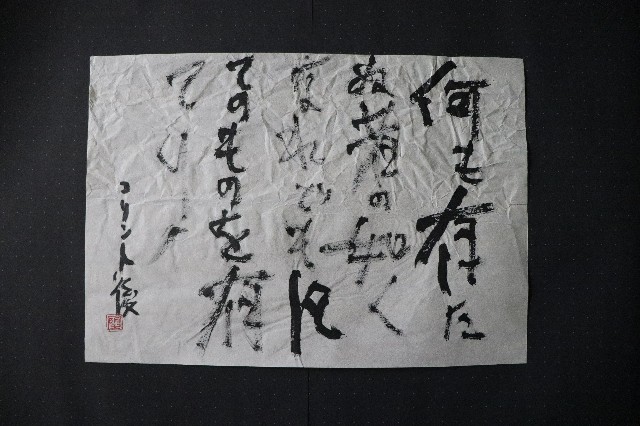 何も有た
ぬ者の如く
なれども凡
てのものを有
てり
コリント後